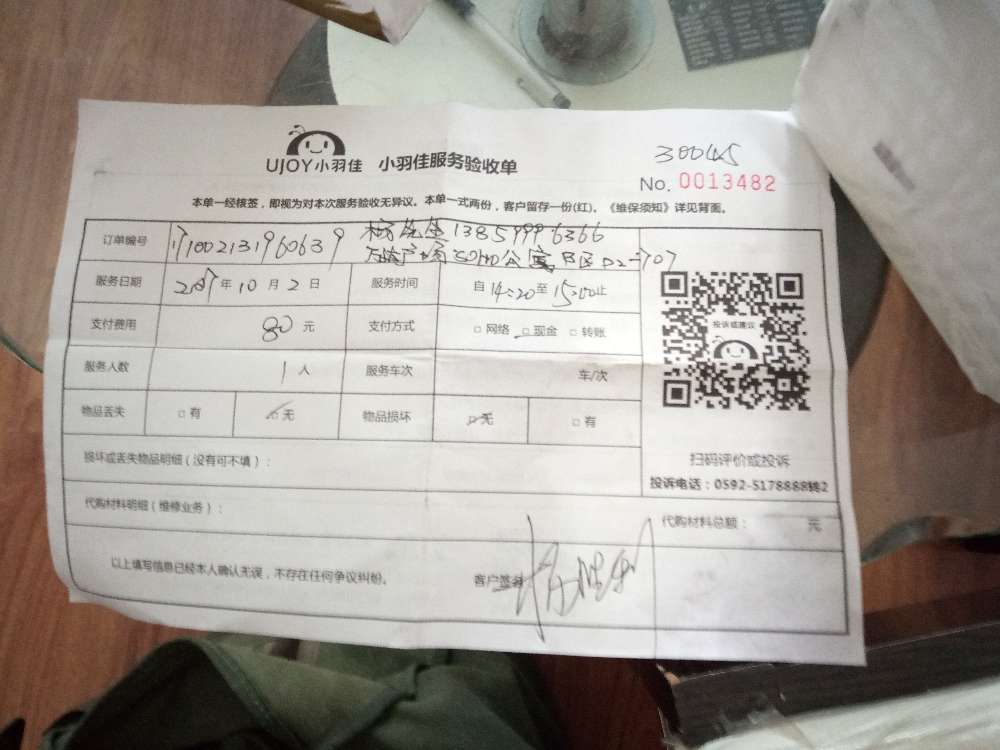 UJOY小羽佳 小羽佳服务验收单
30045
No. 0013482
本单一经核签，即视为对本次服务验收无异议。本单一式两份，客户留存一份(红)。《维保须知》详见背面。
订单编号 171002131960639 杨先生 13859996366
广场soho公寓B区D2-707
服务日期 2017年10月2日 服务时间 自14:20至15:00止
支付费用 80元 支付方式 □网络 □现金 □转账
服务人数 1人 服务车次 车/次
物品丢失 □有 □无 物品损坏 □无 □有
投诉或建议
扫码评价或投诉
投诉电话：0592-5178888转2
损坏或丢失物品明细（没有可不填）：
代购材料明细（维修业务）：
代购材料总额： 元
以上填写信息已经本人确认无误，不存在任何争议纠纷。 客户签名